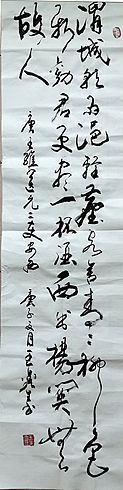 渭城朝雨浥輕塵客舍青々柳色
新勸君更盡一杯酒西出陽關無
故人
唐王維送元二使安西
庚子 月王